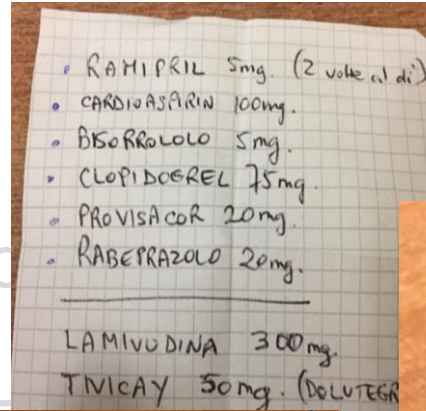 • RAMIPRIL 5mg. (2 volte al dì)
• CARDIOASPIRIN 100mg.
• BISOPROLOLO 5mg.
• CLOPIDOGREL 75mg.
• PROVISACOR 20mg.
• RABEPRAZOLO 20mg.
LAMIVUDINA 300mg.
TIVICAY 50mg. (DOLUTEGR